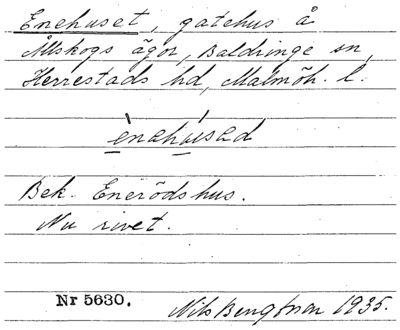 Enehuset, gatehus å
Allskogs ägor, Baldringe sn,
Herrestads hd, Malmöh. l.
ènahúsad
Bek. Enerödshus.
Nu rivet.
Nr 5630.
Nils Bengtson 1935.